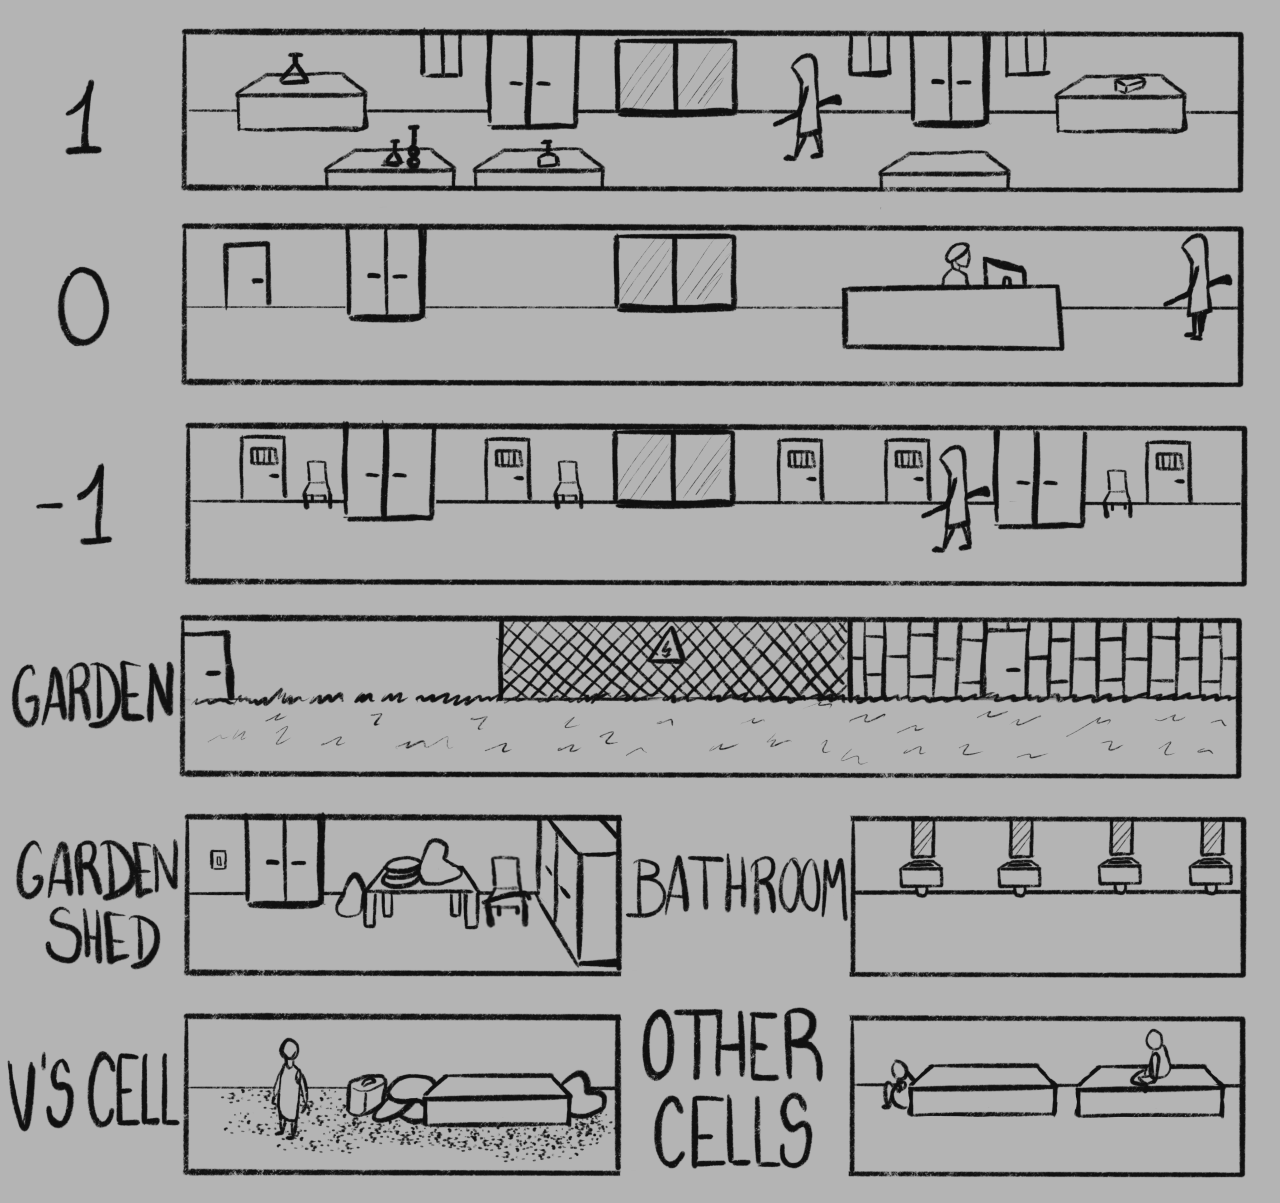 1
0
-1
GARDEN
GARDEN
SHED
BATHROOM
V'S CELL
OTHER
CELLS